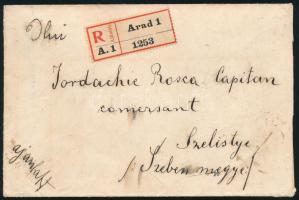 Dlui
R Arad 1
A. 1 1253
Iordachie Rosca Capitan
comersant
Szelistye
/Szeben megye/
ajánlott